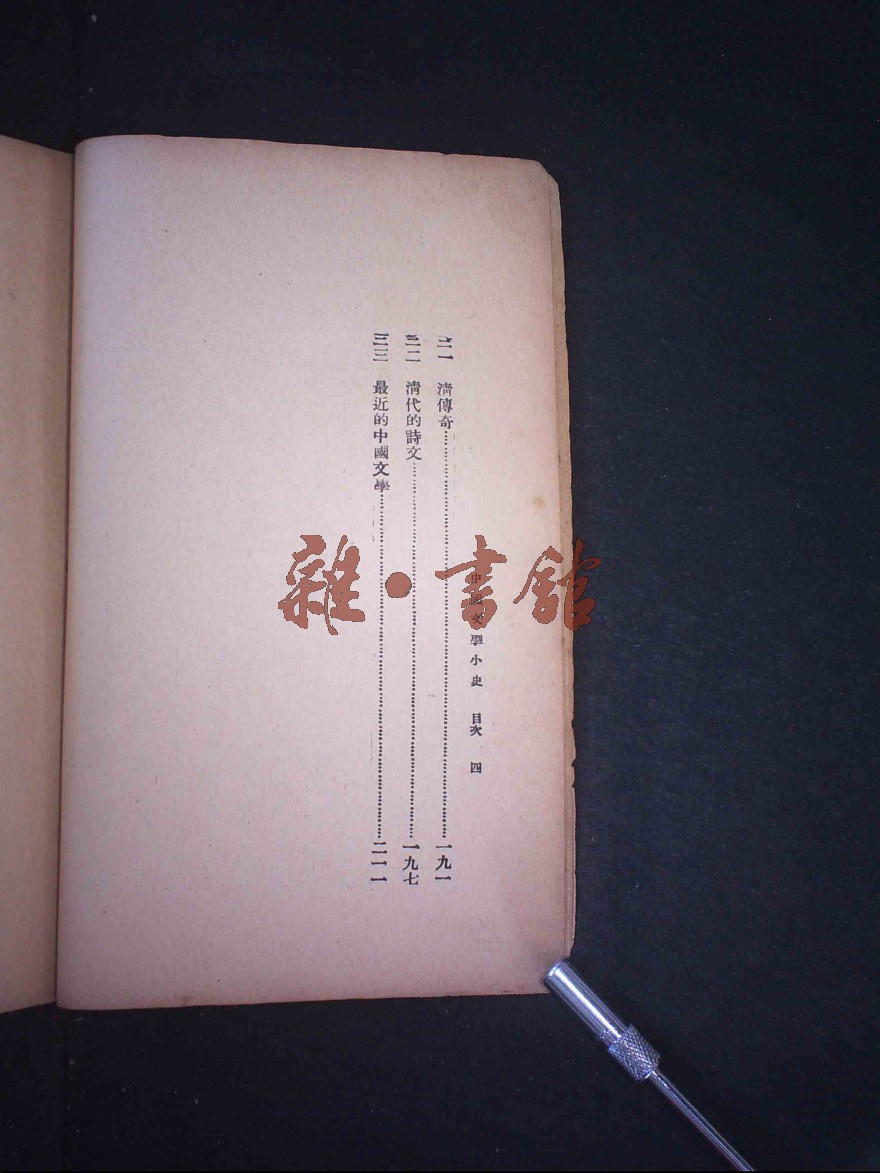 中國文學小史 目次 四
二一 淸傳奇……一九一
二二 淸代的詩文……一九七
二三 最近的中國文學……二一一
雜·書館